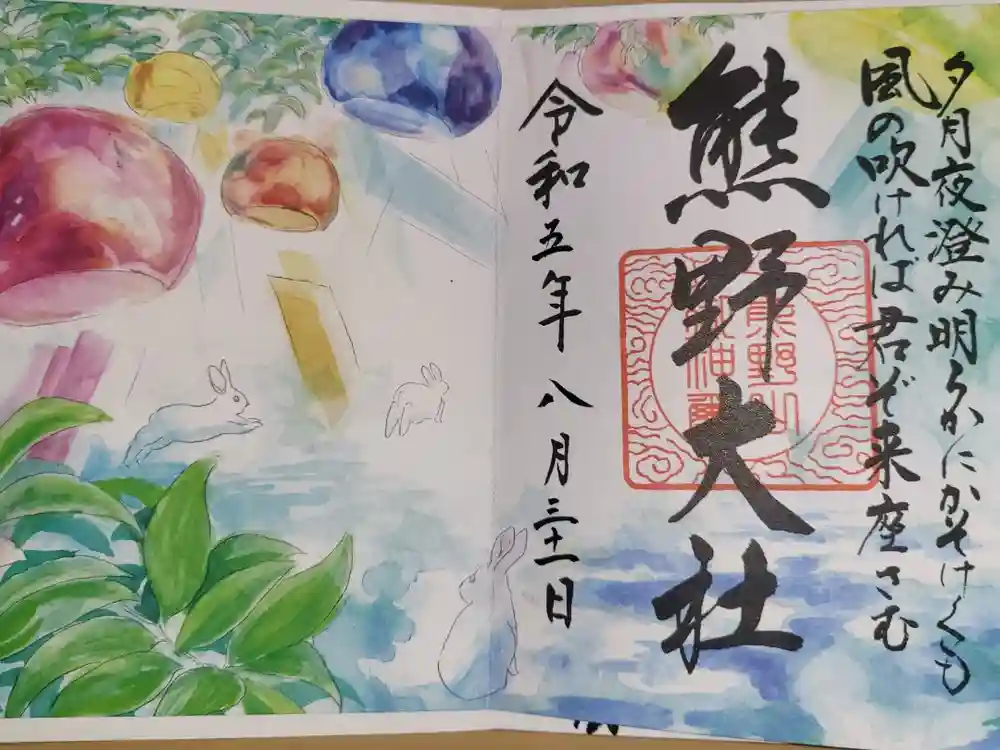 夕月夜澄み明らかにかそけくも
風の吹ければ君ぞ来座さむ
熊野大社
令和五年八月三十一日